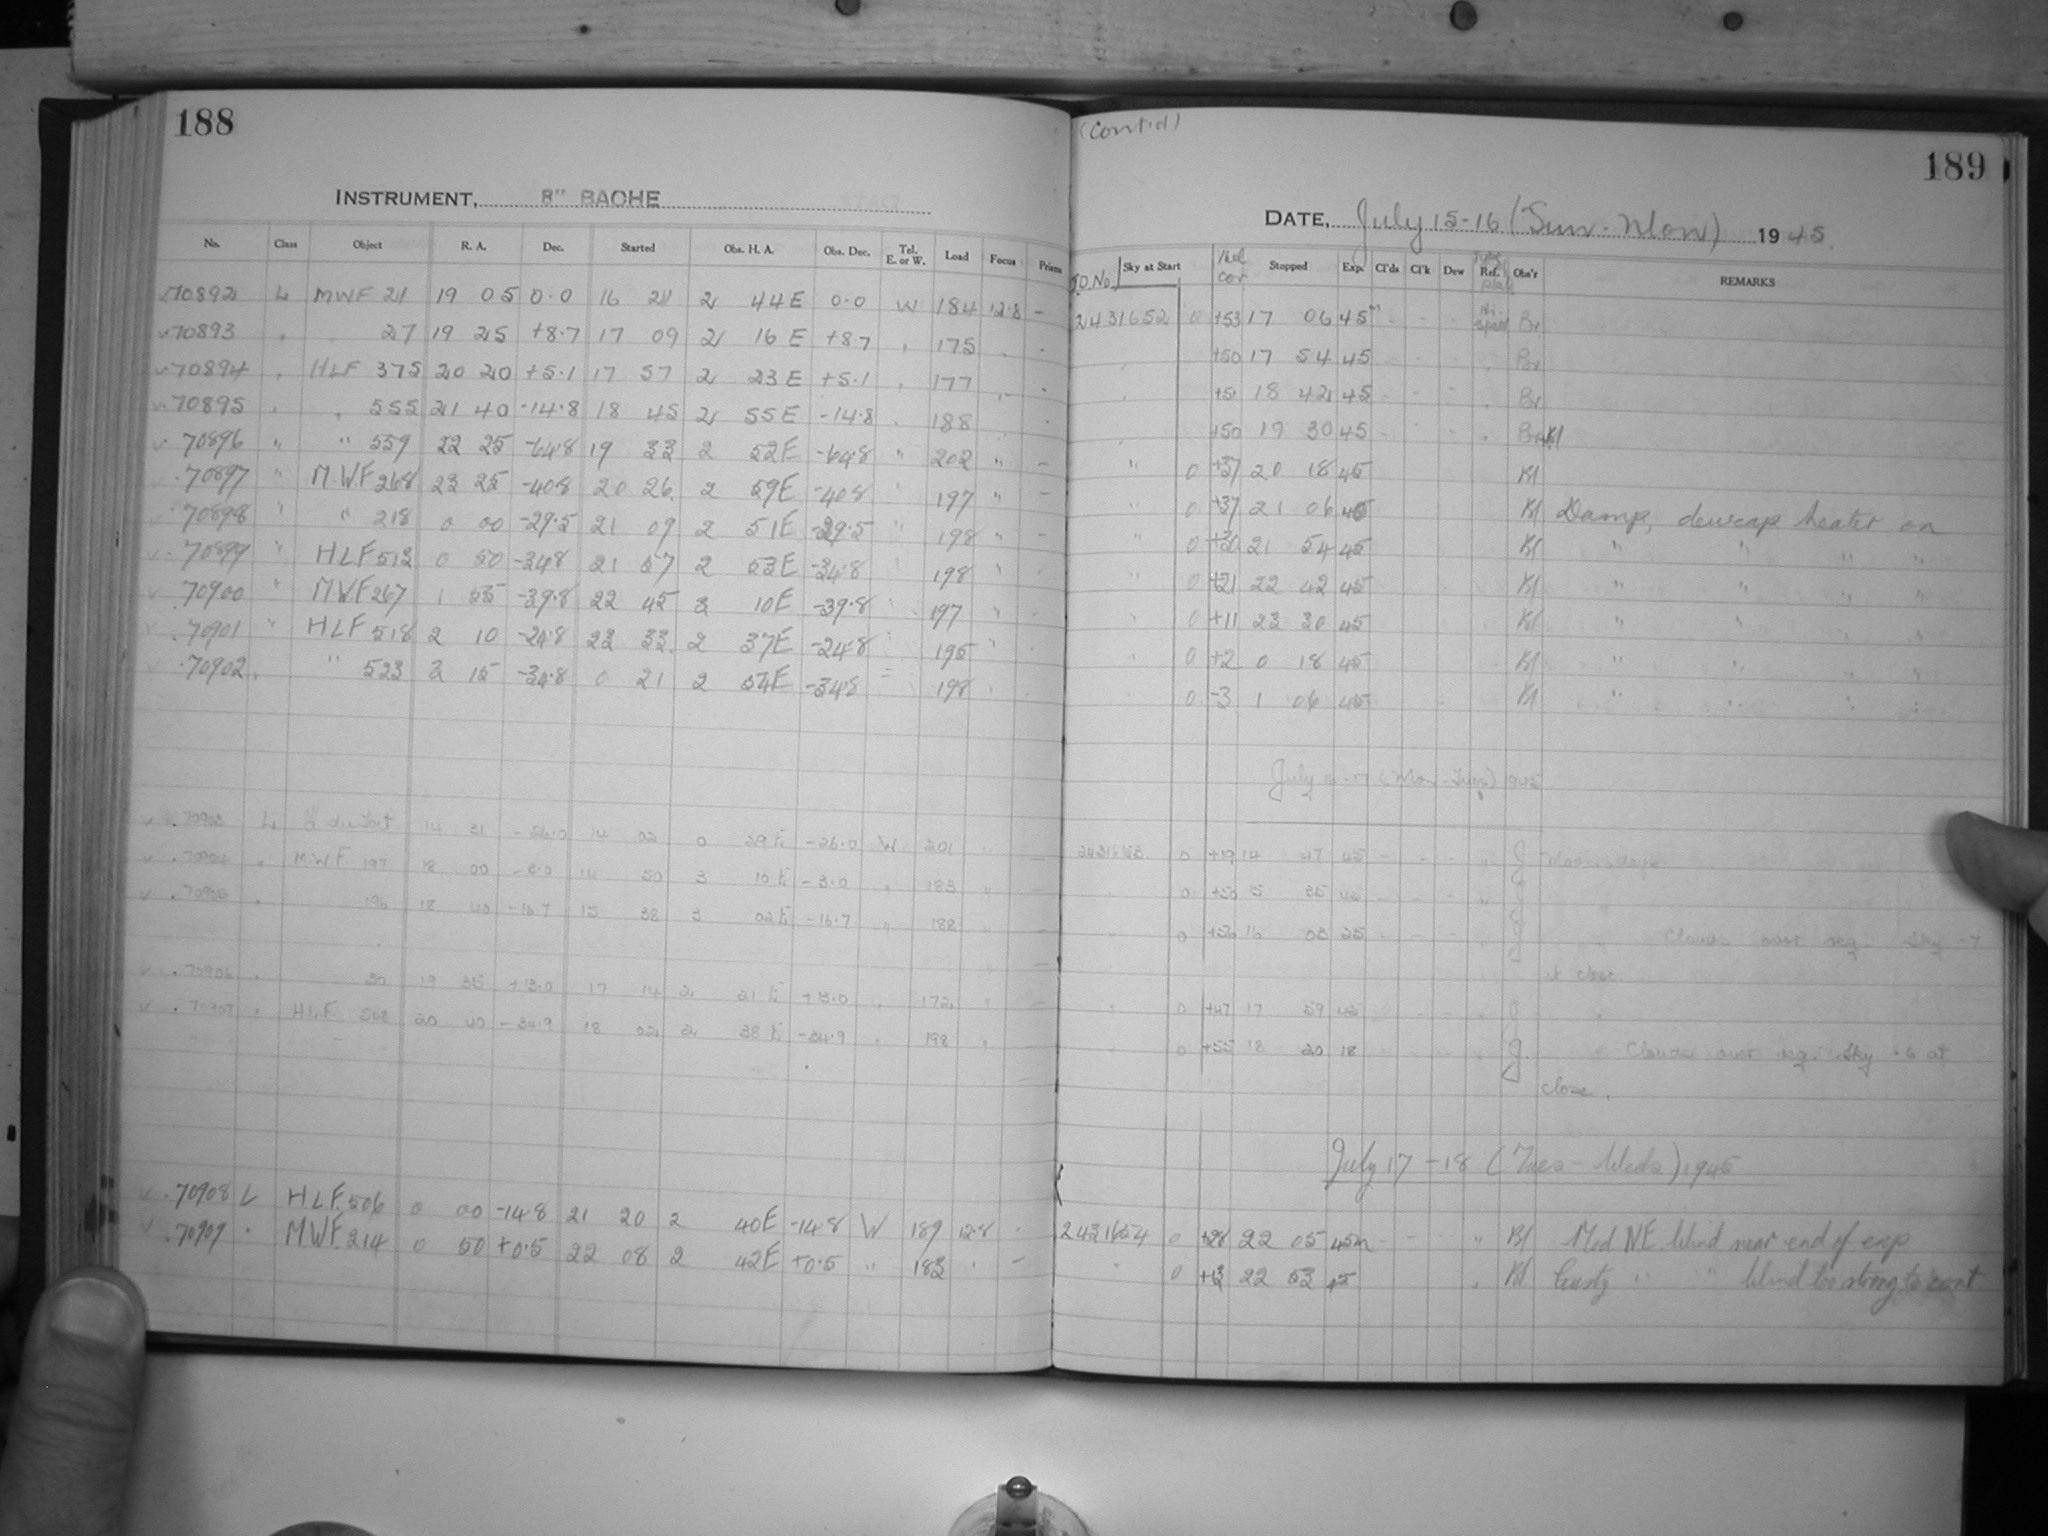 188
INSTRUMENT, 8" BACHE
No. Class Object R. A. Dec. Started Obs. H. A. Obs. Dec. Tel. E. or W. Load Focus Prisms
70892 L MWF 21 19 05 0.0 16 21 2 44E 0.0 W 184 12.8 -
70893 " 27 19 25 +8.7 17 09 2 16E +8.7 " 175 " -
70894 " HLF 375 20 20 +5.1 17 57 2 23E +5.1 " 177 " -
70895 " " 555 21 40 -14.8 18 45 2 55E -14.8 " 188 -
70896 " " 559 22 25 -64.8 19 33 2 52E -64.8 " 202 " -
70897 " M.W.F 268 23 25 -40.8 20 26 2 59E -40.8 " 197 " -
70898 " " 218 0 00 -29.5 21 09 2 51E -29.5 " 198 " -
70899 " HLF 513 0 50 -34.8 21 57 2 53E -34.8 198 " -
70900 " M.W.F 267 1 55 -39.8 22 45 3 10E -39.8 " 197 " -
70901 " HLF 518 2 10 -24.8 23 33 2 37E -24.8 " 195 " -
70902 " " 523 3 15 -34.8 0 21 2 54E -34.8 " 198
70903 L 14 31 -26.0 14 02 0 29E -26.0 W 201 " -
70904 " M.W.F. 197 18 00 -3.0 14 50 3 10E -3.0 " 183 " -
70905 " 196 18 40 -16.7 15 38 3 02E -16.7 " 188 " -
70906 " 30 19 35 +13.0 17 14 2 21E +13.0 " 172 " -
70907 " HLF 20 40 -34.9 18 02 2 38E -34.9 " 198 " -
70908 L HLF. 506 0 00 -14.8 21 20 2 40E -14.8 W 189 12.8 -
70909 " MWF. 214 0 50 +0.5 22 08 2 42E +0.5 " 183 " -
(Cont'd)
189
DATE, July 15-16 (Sun-Mon) 1945.
J.D. No. Sky at Start cor Stopped Exp. Cl'ds Cl'k Dew Ref. Obs'r REMARKS
2431652 0 +53 17 06 45m - - - Hi-speed Br
" +50 17 54 45 " Br
" +51 18 42 45 - - - " Br
" +50 19 30 45 - - - " Br Bl
" 0 +37 20 18 45 Bl
" 0 +37 21 06 40 Bl Damp, dewcap heater on
" 0 +30 21 54 45 Bl " " " "
" 0 +21 22 42 45 Bl " " " "
" 0 +11 23 30 45 Bl " " " "
" 0 +2 0 18 45 Bl " " " "
" 0 -3 1 06 45 Bl " " " "
July (Mon-Tues) 1945
2431653 0 +19 14 47 45 - - - " J
" 0 +50 15 35 45 - - - " J "
" 0 +56 16 03 25 - - - " J " Clouds over reg. Sky .7
at close.
" 0 +47 17 59 45 - - - " J "
" 0 +55 18 20 18 - - - " J " Clouds over reg. Sky .6 at
close.
July 17-18 (Tues-Weds) 1945
2431654 0 +28 22 05 45m - - - " Bl Mod N.E. Wind near end of exp
" 0 22 53 45 " Bl Gusty " " Wind too strong to cont